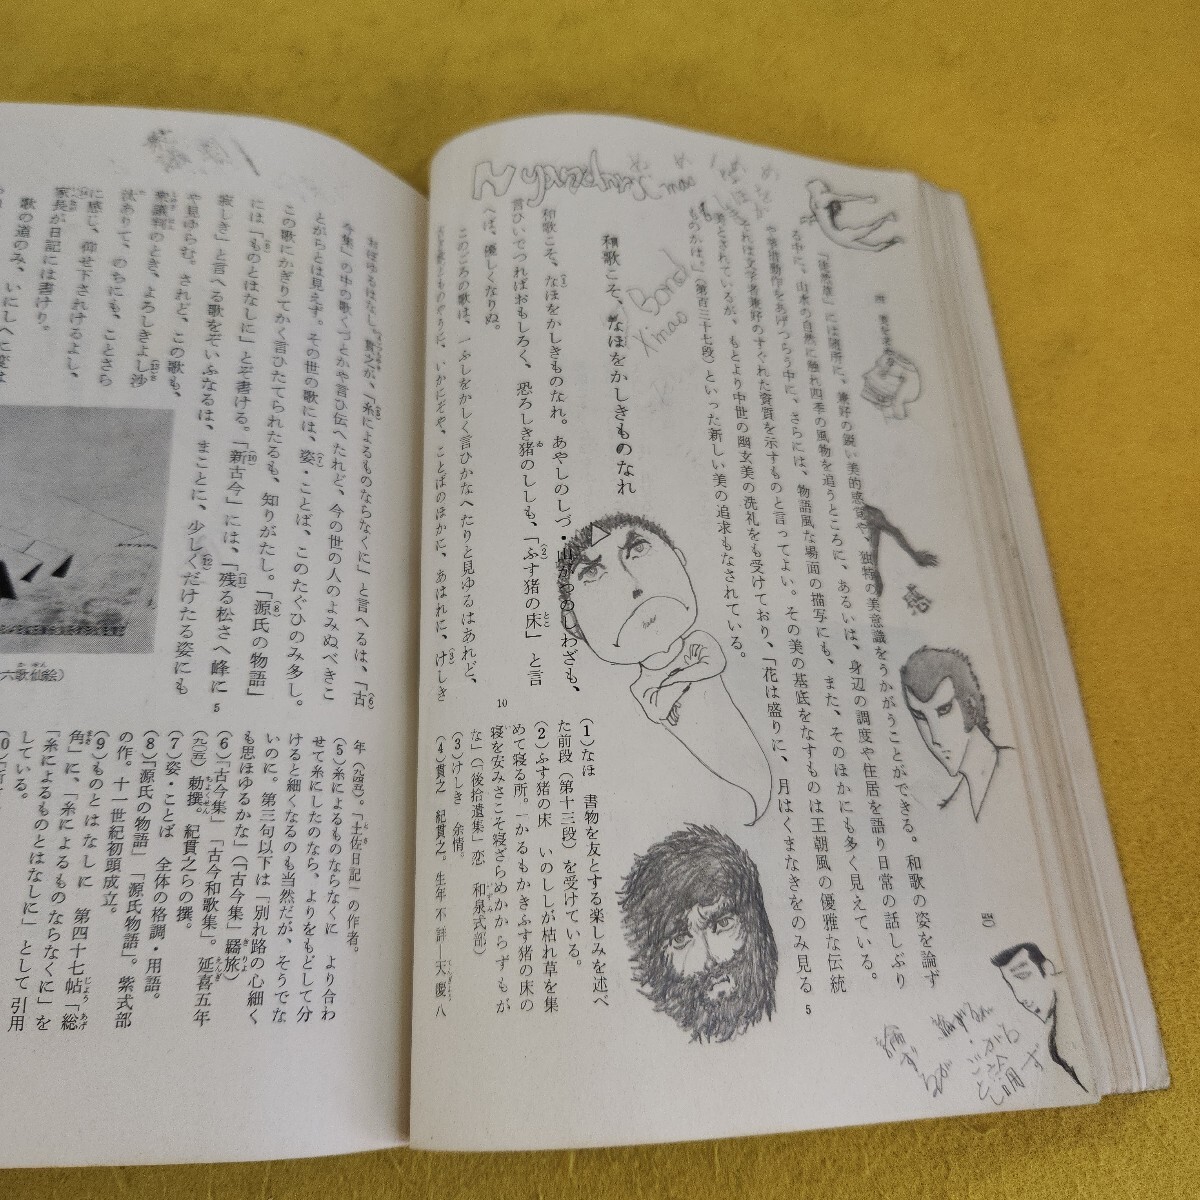 『徒然草』には随所に、兼好の鋭い美的感覚や、独特の美意識をうかがうことができる。和歌の姿を論ず
る中に、山水の自然に触れ四季の風物を追うところに、あるいは、身辺の調度や住居を語り日常の話しぶり
や著措動作をあげつらう中に、さらには、物語風な場面の描写にも、また、そのほかにも多く見えている。
それは文学者兼好のすぐれた資質を示すものと言ってよい。その美の基底をなすものは王朝風の優雅な伝統
美とされているが、もとより中世の幽玄美の洗礼をも受けており、「花は盛りに、月はくまなきをのみ見る
ものかは。」(第百三十七段)といった新しい美の追求もなされている。
5
和歌こそ、なほをかしきものなれ
和歌こそ、(1)なほをかしきものなれ。あやしのしづ・山がつのしわざも、
言ひいでつればおもしろく、恐ろしき猪のししも、「(2)ふす猪の床」と言
へば、優しくなりぬ。
このごろの歌は、一ふしをかしく言ひかなへたりと見ゆるはあれど、
古き歌どものやうに、いかにぞや、ことばのほかに、あはれに、(3)けしき
10
(1)なほ 書物を友とする楽しみを述べ
た前段(第十三段)を受けている。
(2)ふす猪の床 いのししが枯れ草を集
めて寝る所。「かるもかきふす猪の床の
寝を安みさこそ寝ざらめかからずもが
な」(「後拾遺集」恋 和泉式部)
(3)けしき 余情。
(4)貫之 紀貫之。生年不詳—天慶八
Bored
Xmas
感
論ず
覚ゆるはなし。貫之が、「(5)糸によるものならなくに」と言へるは、「(6)古
今集」の中の歌くづとかや言ひ伝へたれど、今の世の人のよみぬべきこ
とがらとは見えず。その世の歌には、(7)姿・ことば、このたぐひのみ多し。
この歌にかぎりてかく言ひたてられたるも、知りがたし。「(8)源氏の物語」
には「(9)ものとはなしに」とぞ書ける。「(10)新古今」には、「(11)残る松さへ峰に
寂しき」と言へる歌をぞいふなるは、まことに、少し(12)くだけたる姿にも
や見ゆらむ。されど、この歌も、
衆議判のとき、よろしきよし沙
汰ありて、のちにも、ことさら
に感じ、仰せ下されけるよし、
家長が日記には書けり。
歌の道のみ、いにしへに変は
5
六歌仙絵)
年(九四五)。「土佐日記」の作者。
(5)糸によるものならなくに より合わ
せて糸にしたのなら、よりをもどして分
けると細くなるのも当然だが、そうでな
いのに。第三句以下は「別れ路の心細く
も思ほゆるかな」(「古今集」羇旅)
(6)「古今集」 「古今和歌集」。延喜五年
(九〇五)勅撰。紀貫之らの撰。
(7)姿・ことば 全体の格調・用語。
(8)「源氏の物語」 「源氏物語」。紫式部
の作。十一世紀初頭成立。
(9)ものとはなしに 第四十七帖「総
角」に、「糸によるものならなくに」を
「糸によるものとはなしに」として引用
している。